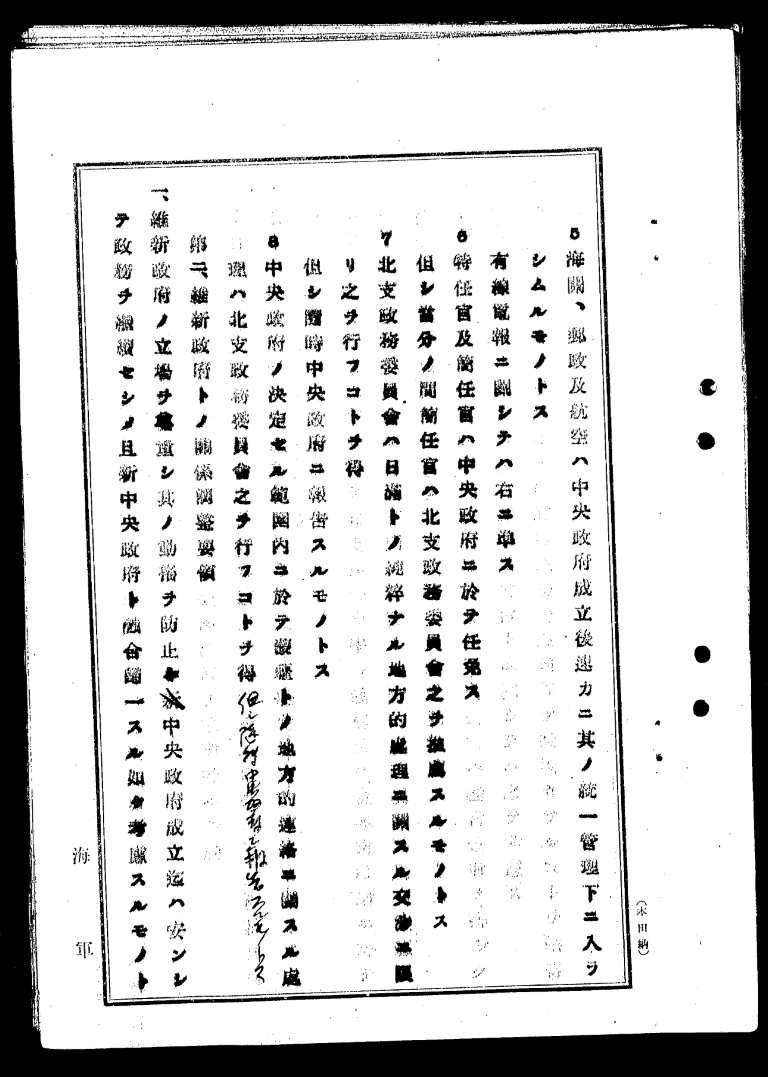 5海關、郵政及航空ハ中央政府成立後速カニ其ノ統一管理下ニ入ラ
シムルモノトス
有線電報ニ關シテハ右ニ準ス
6特任官及簡任官ハ中央政府ニ於テ任免ス
但シ當分ノ間簡任官ハ北支政務委員會之ヲ推薦スルモノトス
7北支政務委員會ハ日滿トノ純粹ナル地方的處理ニ關スル交渉ニ限
リ之ヲ行フコトヲ得
但シ隨時中央政府ニ報告スルモノトス
8中央政府ノ決定セル範圍内ニ於テ蒙疆トノ地方的連絡ニ關スル處
理ハ北支政務委員會之ヲ行フコトヲ得但シ隨時中央政府ニ報告スルモノトス
第二、維新政府トノ關係調整要領
一、維新政府ノ立場ヲ尊重シ其ノ動搖ヲ防止シ中央政府成立迄ハ安ンシ
テ政務ヲ繼續セシメ且新中央政府ト融合歸一スル如ク考慮スルモノト
海軍